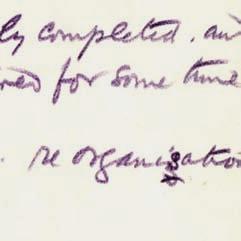 ly completed. and
ned for some time
. re organisation